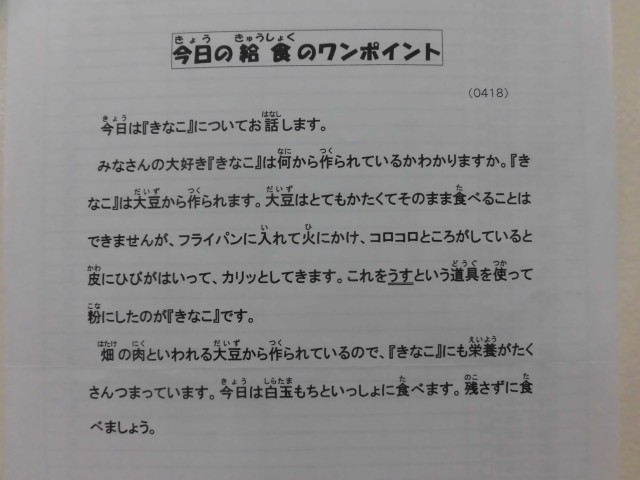 今日の給食のワンポイント
（0418）
今日は『きなこ』についてお話します。
みなさんの大好き『きなこ』は何から作られているかわかりますか。『き
なこ』は大豆から作られます。大豆はとてもかたくてそのまま食べることは
できませんが、フライパンに入れて火にかけ、コロコロところがしていると
皮にひびがはいって、カリッとしてきます。これをうすという道具を使って
粉にしたのが『きなこ』です。
畑の肉といわれる大豆から作られているので、『きなこ』にも栄養がたく
さんつまっています。今日は白玉もちといっしょに食べます。残さずに食
べましょう。